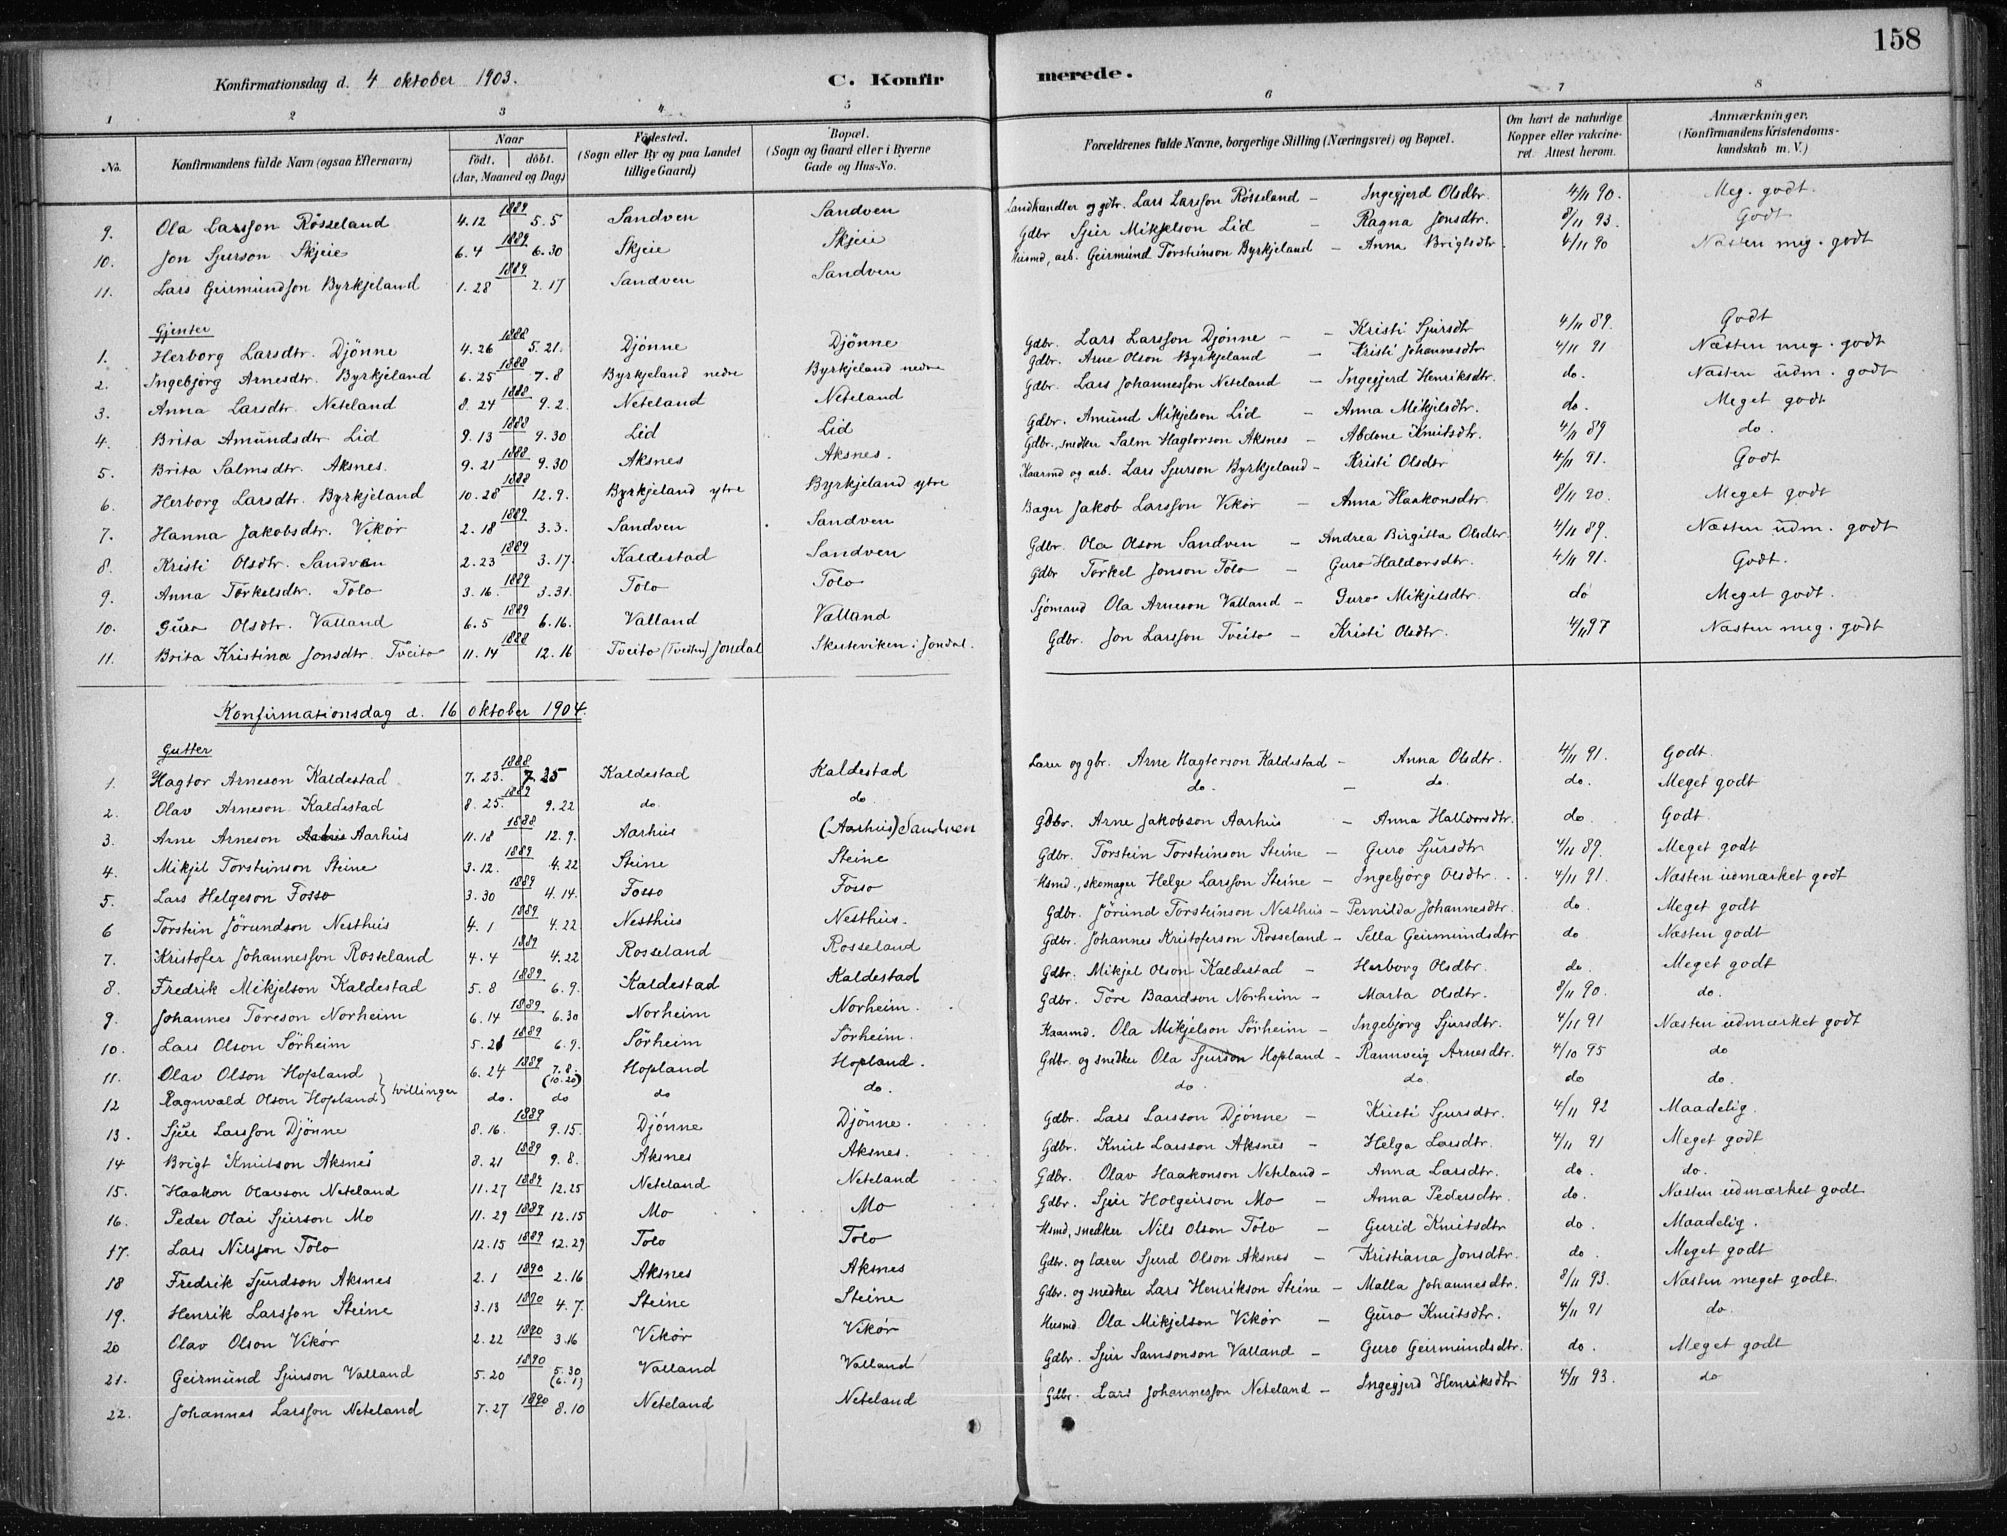 158
Konfirmationsdag d. 4 oktober 1903. C. Konfirmerede.
1 2 3 4 5 6 7 8
No. Konfirmandens fulde Navn (ogsaa Efternavn) Naar Født. døbt. (Aar, Maaned og Dag) Fødested. (Sogn eller By og paa Landet tillige Gaard) Bopæl. (Sogn og Gaard eller i Byerne Gade og Hus-No. Forældrenes fulde Navne, borgerlige Stilling (Næringsvei) og Bopæl. Om havt de naturlige Kopper eller vakcineret. Attest herom. Anmærkninger. (Konfirmandens Kristendomskundskab m. V.)
9. Ola Larsson Røsseland 4.12 1889 5.5 Sandven Sandven Landhandler og gdbr. Lars Larsson Røsseland – Ingegjerd Olsdtr. 4/11 90. Meg. godt.
10. Jon Sjurson Skjeie 6.4 1889 6.30 Skjeie Skjeie Gdbr Sjur Mikjelson Lid – Ragna Jonsdtr. 8/11 93. Godt
11. Lars Geirmundson Byrkjeland 1.28 1889 2.17 Sandven Sandven Husmd, arb. Geirmund Torsteinson Byrkjeland – Anna Brigtsdtr. 4/11 90 Næsten meg. godt
Gjenter
1. Herborg Larsdtr. Djønne 4.26 1888 5.21. Djønne Djønne Gdbr. Lars Larsson Djønne – Kristi Sjursdtr 4/11 89. Godt
2. Ingebjørg Arnesdtr. Byrkjeland 6.25 1888 7.8 Byrkjeland nedre Byrkjeland nedre Gdbr. Arne Olson Byrkjeland – Kristi Johannesdtr 4/11 91 Næsten meg. godt
3. Anna Larsdtr. Neteland 8.24 1888 9.2. Neteland Neteland Gdbr. Lars Johannesson Neteland – Ingegjerd Henriksdtr. do. Næsten udm. godt
4. Brita Amundsdtr Lid 9.13 1888 9.30 Lid Lid Gdbr. Amund Mikjelson Lid – Anna Mikjelsdtr. do. Meget godt
5. Brita Salmsdtr. Aksnes. 9.21 1888 9.30 Aksnes Aksnes. Gdbr., snedker Salm Hagtorson Aksnes – Abdone Knutsdtr. 4/11 89 do.
6. Herborg Larsdtr. Byrkjeland 10.28 1888 12.9. Byrkjeland ytre Byrkjeland ytre Kaarmd og arb. Lars Sjurson Byrkjeland – Kristi Olsdtr 4/11 91. Godt
7. Hanna Jakobsdtr. Vikør 2.18 1889 3.3. Sandven Sandven Bager Jakob Larsson Vikør – Anna Haakonsdtr. 8/11 90. Meget godt
8. Kristi Olsdtr. Sandven 2.23 1889 3.17. Kaldestad Sandven Gdbr. Ola Olson Sandven – Andrea Birgitta Olsdtr. 4/11 89. Næsten udm. godt
9. Anna Torkelsdtr. Tolo 3.16. 1889 3.31. Tolo Tolo Gdbr Torkel Jonson Tolo – Guro Haldorsdtr. 4/11 91. Godt.
10. Guro Olsdtr. Valland 6.5 1889 6.16. Valland Valland Sjømand Ola Arneson Valland – Guro Mikjelsdtr. do Meget godt.
11. Brita Kristina Jonsdtr. Tveito 11.14 1888 12.16 Tveito (Tveiten) Jondal Skuteviken i Jondal. Gdbr. Jon Larsson Tveito – Kristi Olsdtr. 4/11 97 Næsten meg. godt
Konfirmationsdag d. 16 oktober 1904.
Gutter
1. Hagtor Arneson Kaldestad 7.23. 1888 7.25 Kaldestad Kaldestad Lærer og gbr. Arne Hagtorson Kaldestad – Anna Olsdtr. 4/11 91. Godt
2. Olav Arneson Kaldestad 8.25. 1889 9.22 do. do. do. – do. do. Meget godt
3. Arne Arneson Aarhus 11.18 1888 12.9. Aarhus (Aarhus) Sandven Gdbr. Arne Jakobson Aarhus – Anna Halldorsdtr. do. Godt.
4. Mikjel Torsteinson Steine 3.12. 1889 4.22 Steine Steine Gdbr. Torstein Torsteinson Steine – Guro Sjursdtr 4/11 89. Meget godt
5. Lars Helgeson Fosso 3.30 1889 4.14. Fosso Fosso Hsmd., skomager Helge Larsson Steine – Ingebjørg Olsdtr. 4/11 91. Næsten udmærket godt
6 Torstein Jørundson Nesthus 4.1 1889 4.22 Nesthus Nesthus. Gdbr. Jørund Torsteinson Nesthus – Pernilda Johannesdtr. do. Meget godt
7. Kristofer Johannesson Rosseland 4.4 1889 4.22 Rosseland Rosseland Gdbr. Johannes Kristoferson Rosseland – Sella Geirmundsdtr do Næsten godt
8. Fredrik Mikjelson Kaldestad 5.8 1889 6.9. Kaldestad Kaldestad Gdbr. Mikjel Olson Kaldestad – Herborg Olsdtr. do. Meget godt
9. Johannes Toreson Norheim 6.14 1889 6.30 Norheim Norheim. Gdbr. Tore Baardson Norheim – Marta Olsdtr. 8/11 90. do.
10. Lars Olson Sørheim 5.21 1889 6.9. Sørheim Sørheim. Kaarmd. Ola Mikjelson Sørheim – Ingebjorg Sjursdtr. 4/11 91 Næsten udmærket godt
11. Olav Olson Hopland 6.24 1889 7.8. (10.20) Hopland Hopland. Gdbr. og snedker Ola Sjurson Hopland – Rannveig Arnesdtr. 4/10 95 do
12 Ragnvald Olson Hopland } tvillinger do. do do do. do. do. do do.
13. Sjur Larsson Djønne 8.16. 1889 9.15. Djønne Djønne. Gdbr. Lars Larsson Djønne – Kristi Sjursdtr. 4/11 92 Maadelig.
14 Brigt Knutson Aksnes 8.21 1889 9.8. Aksnes Aksnes. Gdbr. Knut Larsson Aksnes – Helga Larsdtr. 4/11 91 Meget godt
15. Haakon Olavson Neteland 11.27 1889 12.25 Neteland Neteland Gdbr. Olav Haakonson Neteland – Anna Larsdtr. do. do.
16. Peder Olai Sjurson Mo 11.29 1889 12.15 Mo Mo Gdbr. Sjur Holgeirson Mo – Anna Pedersdtr. do. Næsten udmærket godt
17. Lars Nilsson Tolo 12.15 1889 12.29 Tolo Tolo Hsmd, snedker Nils Olson Tolo – Gurid Knutsdtr do. Maadelig.
18 Fredrik Sjurdson Aksnes 2.1 1890 2.16 Aksnes Aksnes Gdbr. og lærer Sjurd Olson Aksnes – Kristiana Jonsdtr. do. Meget godt
19. Henrik Larsson Steine 3.13 1890 4.7. Steine Steine Gdbr. og snedker Lars Henrikson Steine – Malla Johannesdtr. 8/11 93. Næsten meget godt.
20 Olav Olson Vikør 2.22 1890 3.16 Vikør Vikør Husmd. Ola Mikjelson Vikør – Guro Knutsdtr. 4/11 91 do.
21. Geirmund Sjurson Valland 5.20 1890 5.30 (6.1) Valland Valland Gdbr. Sjur Samsonson Valland – Guro Geirmundsdtr. do. Meget godt
22. Johannes Larsson Neteland 7.27 1890 8.10 Neteland Neteland Gdbr. Lars Johannesson Neteland – Ingegjerd Henriksdtr 4/11 93. do